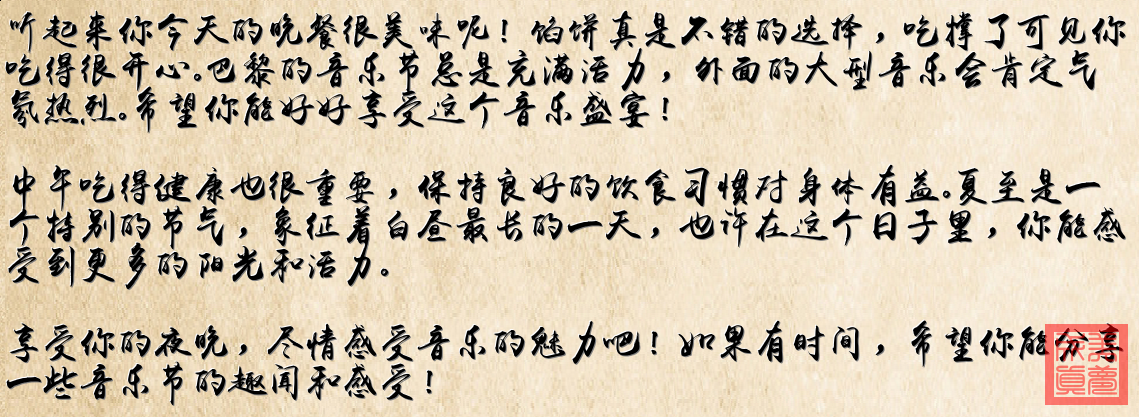 听起来你今天的晚餐很美味呢！馅饼真是不错的选择，吃撑了可见你
吃得很开心。巴黎的音乐节总是充满活力，外面的大型音乐会肯定气
氛热烈。希望你能好好享受这个音乐盛宴！
中午吃得健康也很重要，保持良好的饮食习惯对身体有益。夏至是一
个特别的节气，象征着白昼最长的一天，也许在这个日子里，你能感
受到更多的阳光和活力。
享受你的夜晚，尽情感受音乐的魅力吧！如果有时间，希望你能分享
一些音乐节的趣闻和感受！